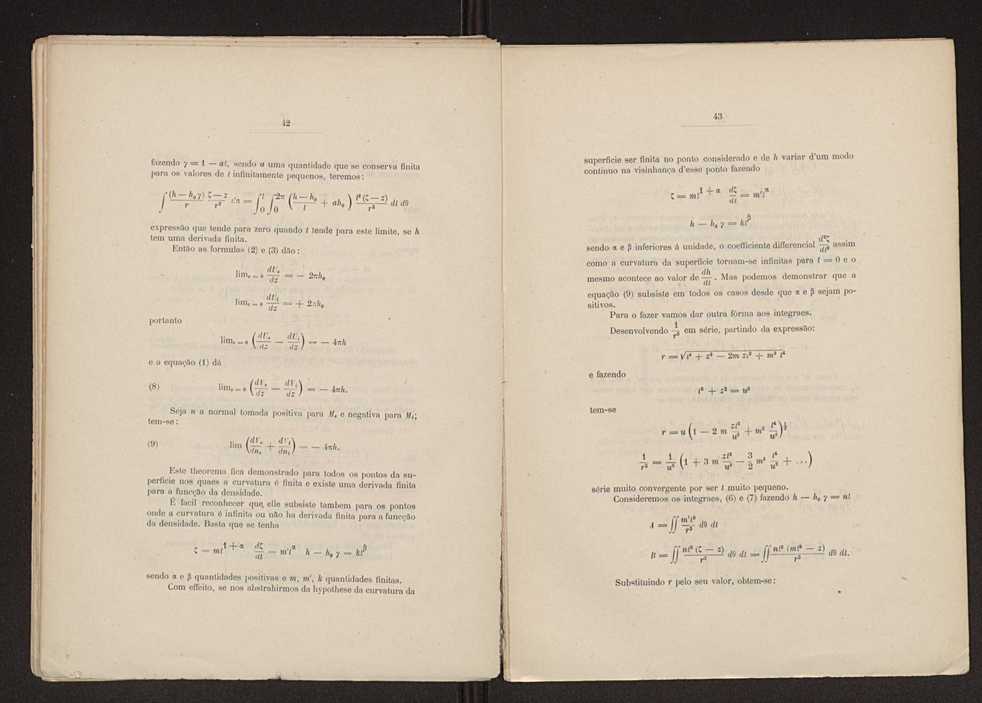 42
fazendo γ = 1 — at, sendo a uma quantidade que se conserva finita
para os valores de t infinitamente pequenos, teremos:
∫ (h — h₀γ)/r · (ζ — z)/r² dσ = ∫₀ᵗ ∫₀²π ((h — h₀)/t + ah₀) t²(ζ — z)/r³ dt dθ
expressão que tende para zero quando t tende para este limite, se h
tem uma derivada finita.
Então as formulas (2) e (3) dão:
lim_{z = 0} dUₑ/dz = — 2πh₀
lim_{z = 0} dUᵢ/dz = + 2πh₀
portanto
lim_{z = 0} (dUₑ/dz — dUᵢ/dz) = — 4πh
e a equação (1) dá
(8) lim_{z = 0} (dVₑ/dz — dVᵢ/dz) = — 4πh.
Seja n a normal tomada positiva para Mₑ e negativa para Mᵢ;
tem-se:
(9) lim (dVₑ/dnₑ + dVᵢ/dnᵢ) = — 4πh.
Este theorema fica demonstrado para todos os pontos da su-
perficie nos quaes a curvatura é finita e existe uma derivada finita
para a funcção da densidade.
É facil reconhecer que elle subsiste tambem para os pontos
onde a curvatura é infinita ou não ha derivada finita para a funcção
da densidade. Basta que se tenha
ζ = mt^{1 + α} dζ/dt = m't^α h — h₀ γ = kt^β
sendo α e β quantidades positivas e m, m', k quantidades finitas.
Com effeito, se nos abstrahirmos da hypothese da curvatura da
43
superficie ser finita no ponto considerado e de h variar d'um modo
continuo na visinhança d'esse ponto fazendo
ζ = mt^{1 + α} dζ/dt = m't^α
h — h₀ γ = kt^β
sendo α e β inferiores á unidade, o coefficiente differencial d²ζ/dt² assim
como a curvatura da superficie tornam-se infinitas para t = 0 e o
mesmo acontece ao valor de dh/dt. Mas podemos demonstrar que a
equação (9) subsiste em todos os casos desde que α e β sejam po-
sitivos.
Para o fazer vamos dar outra fórma aos integraes.
Desenvolvendo 1/r³ em série, partindo da expressão:
r = √(t² + z² — 2m zt² + m² t⁴)
e fazendo
t² + z² = u²
tem-se
r = u (1 — 2 m zt²/u² + m² t⁴/u²)^{1/2}
1/r³ = 1/u³ (1 + 3 m zt²/u² — 3/2 m² t⁴/u² + ...)
série muito convergente por ser t muito pequeno.
Consideremos os integraes, (6) e (7) fazendo h — h₀ γ = nt
A = ∬ m't²/r³ dθ dt
B = ∬ nt² (ζ — z)/r³ dθ dt = ∬ nt² (mt² — z)/r³ dθ dt.
Substituindo r pelo seu valor, obtem-se: